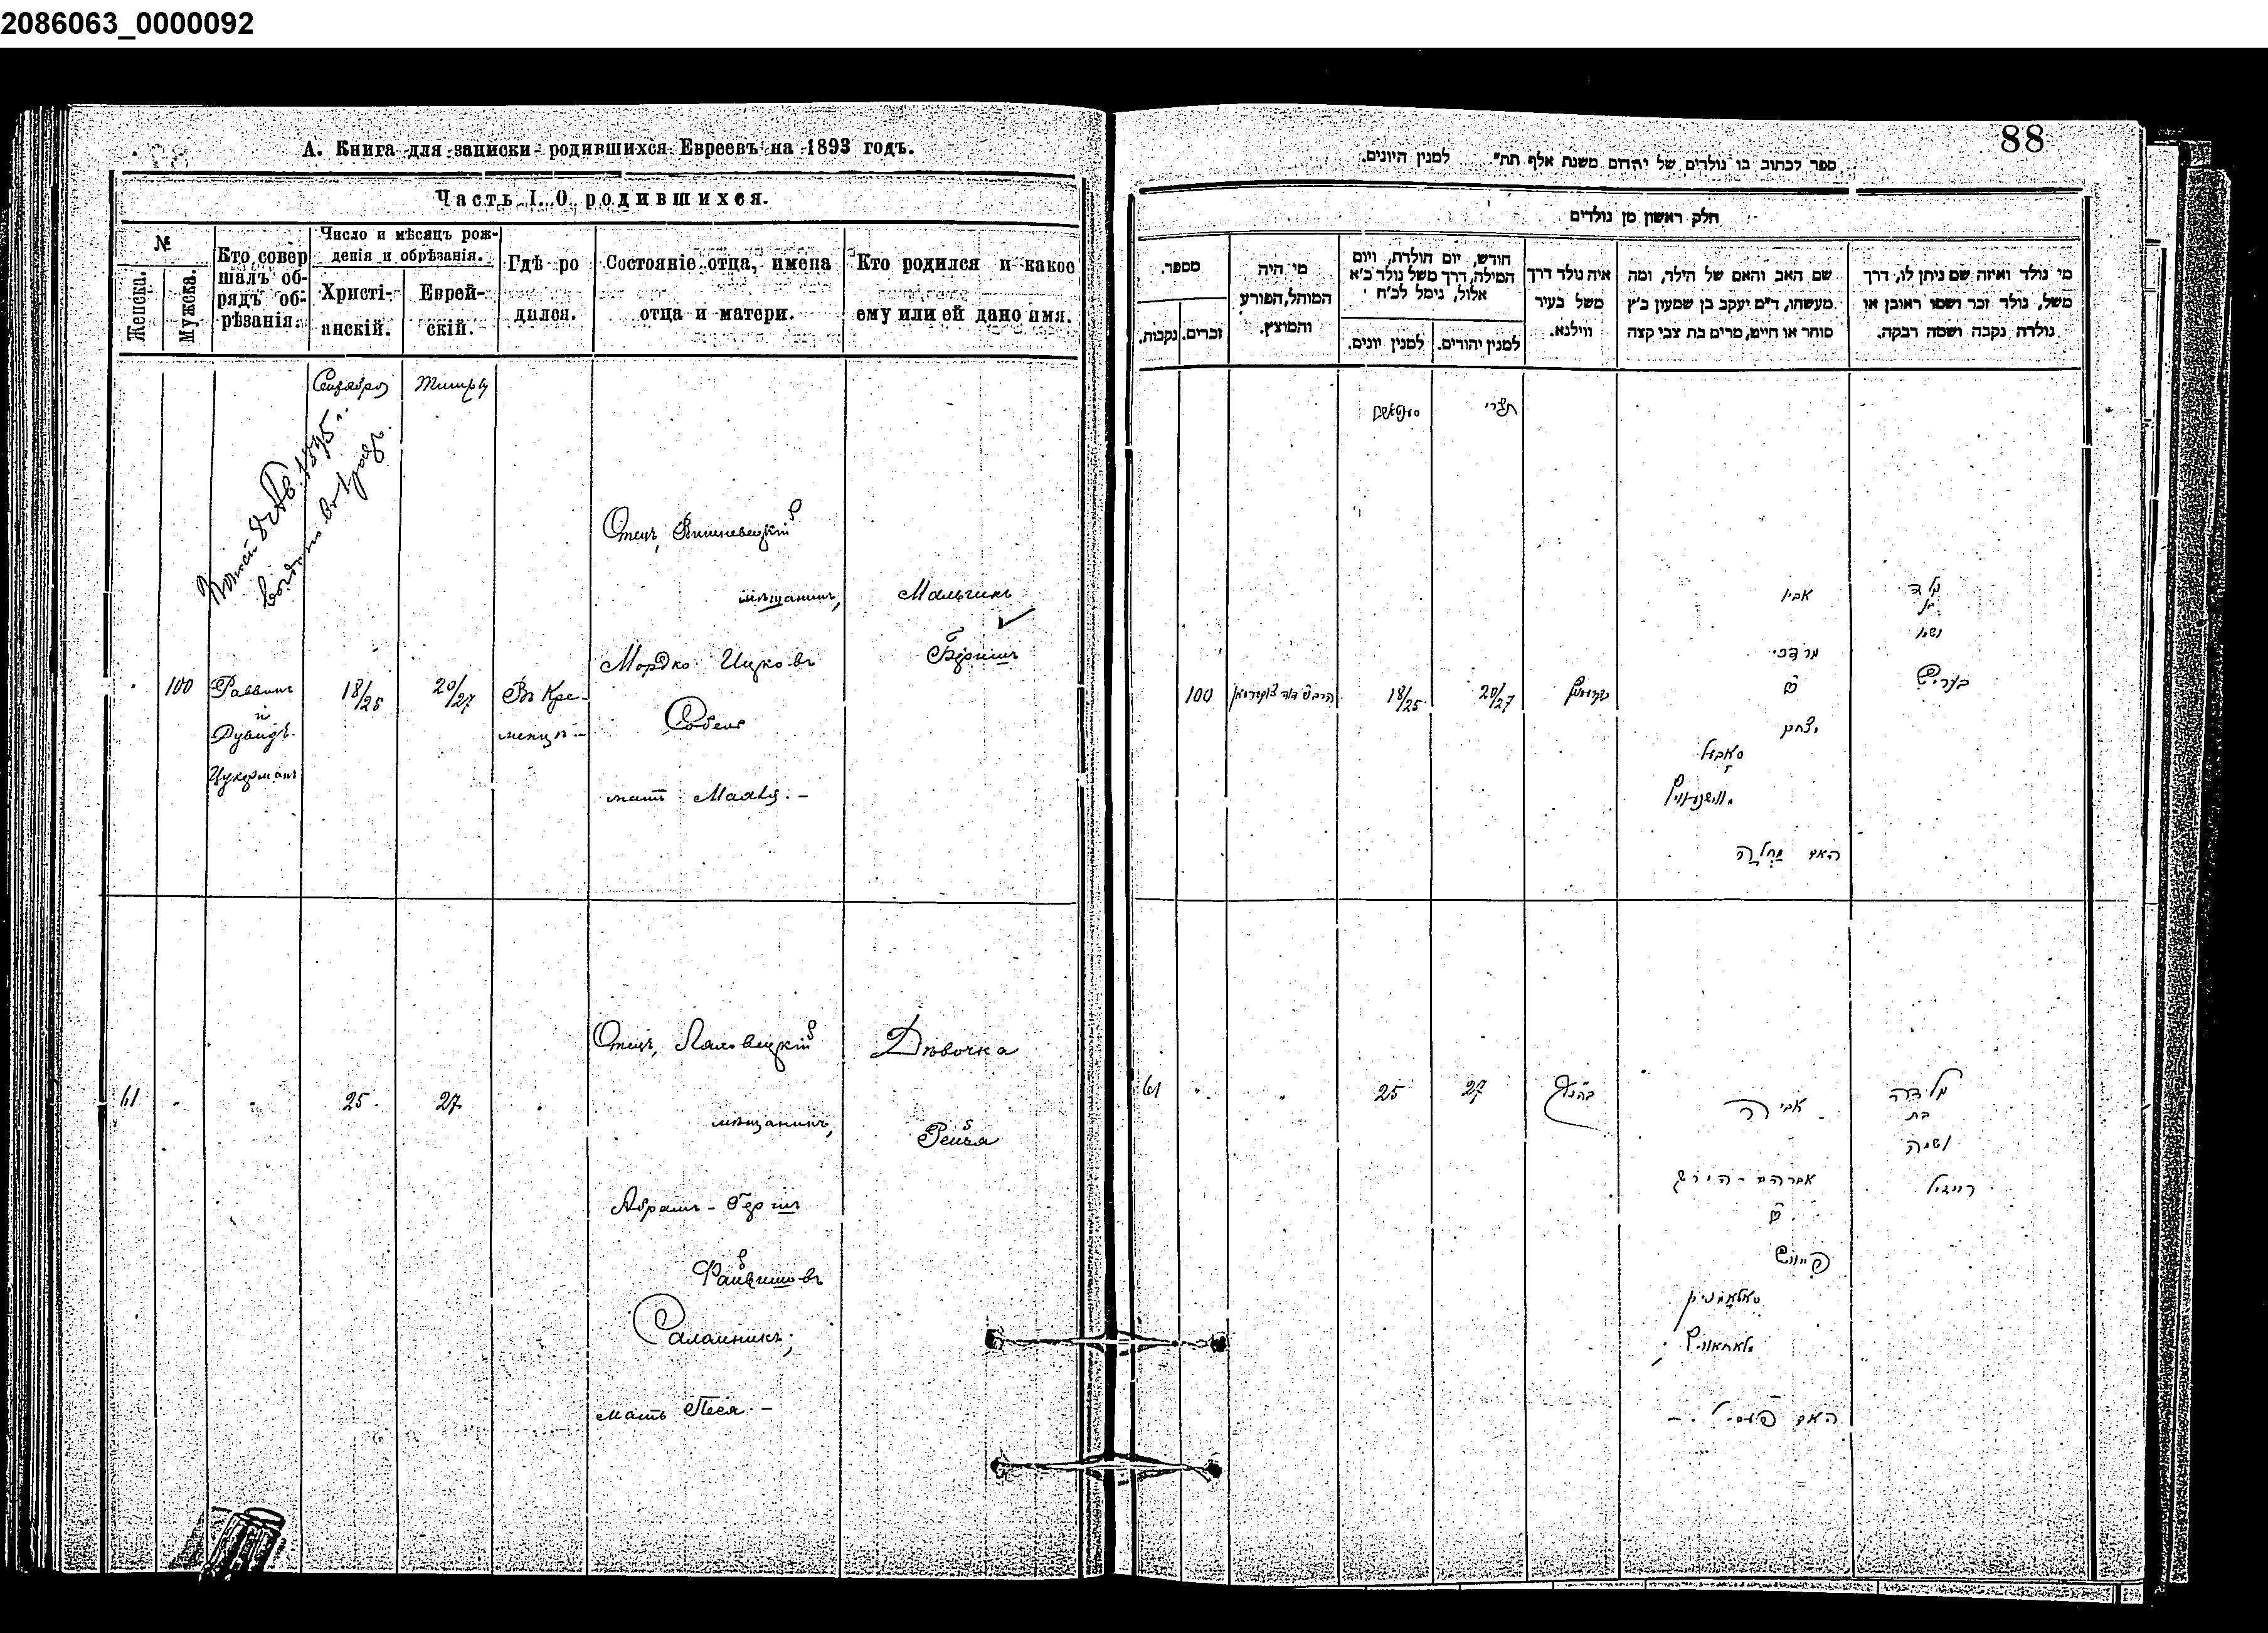 2086063_0000092
А. Книга для записки родившихся Евреевъ на 1893 годъ.
Часть I. О родившихся.
№
Женска.
Мужска.
Кто совер
шалъ об-
рядъ об-
рѣзанія.
Число и мѣсяцъ рож-
денія и обрѣзанія.
Христі-
анскій.
Еврей-
скій.
Гдѣ ро
дился.
Состояніе отца, имена
отца и матери.
Кто родился и какое
ему или ей дано имя.
Сентября
Тишри
100
Раввинъ
и
Дувидъ
Цукерманъ
18/25
20/27
Въ Кре-
менцѣ -
Отецъ, Вишневецкій
мѣщанинъ,
Мордко Ицковъ
Собель
мать Махля. -
Мальчикъ
Беришъ
61
25
27
Отецъ, Ляховецкій
мѣщанинъ,
Абрамъ - Гершъ
Файвишовъ
Саламникъ;
мать Песя. -
Дѣвочка
Рейзя
88
ספר לכתוב בו נולדים של יהודים משנת אלף תת" למנין היונים.
חלק ראשון מן נולדים
מספר.
נקבות.
זכרים.
מי היה
המוהל, הפורע
והמוצץ.
חודש, יום הולדת, ויום
המילה, דרך משל נולד כ"א
אלול, נימל לכ"ח
למנין יונים.
למנין יהודים.
איה נולד דרך
משל בעיר
ווילנא.
שם האב והאם של הילד, ומה
מעשהו, ד"מ יעקב בן שמעון כ"ץ
סוחר או חייט, מרים בת צבי קצה
מי נולד ואיזה שם ניתן לו, דרך
משל, נולד זכר ושמו ראובן או
נולדה נקבה ושמה רבקה.
תשרי
100
18/25
20/27
אביו
מרדכי
יצחק
סאבעל
האם מחלה
נולד
בן
ושמו
בעריש
61
25
27
אביה
אברהם - הירש
פייוויש
האם פעסי -
נולדה
בת
ושמה
רייזיל